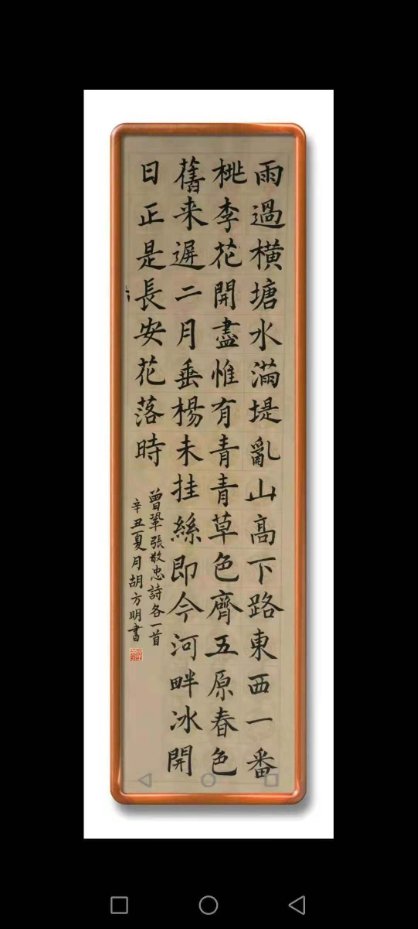 雨過横塘水滿堤亂山高下路東西一番
桃李花開盡惟有青青草色齊五原春色
舊来遲二月垂楊未挂絲即今河畔冰開
日正是長安花落時
曾鞏張敬忠詩各一首
辛丑夏月胡方明書